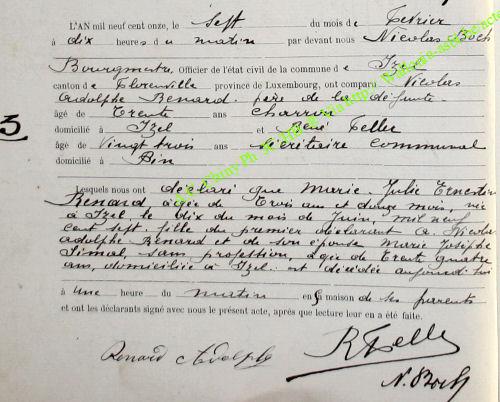 L'AN mil neuf cent onze, le sept du mois de Février
à dix heures du matin par devant nous Nicolas Boch
Bourgmestre, Officier de l'état civil de la commune de Izel
canton de Florenville province de Luxembourg, ont comparu Nicolas
Adolphe Renard, père de la défunte
âgé de trente ans charron
domicilié à Izel et René Feller
âgé de Vingt trois ans secrétaire communal
domicilié à Pin
3
Lesquels nous ont déclaré que Marie Julie Ernestin
Renard âgée de trois ans et mois, née
à Izel, le dix du mois de Juin, mil neuf
cent sept fille du premier déclarant Nicolas
Adolphe Renard et de son épouse Marie Josephe
Simal, sans profession, âgée de trente quatre
ans, domiciliée à Izel est décédée aujourd'hui
à une heure du matin en sa maison de ses parents
et ont les déclarants signé avec nous le présent acte, après que lecture leur en a été faite.
Renard Adolphe
R Feller
N. Boch